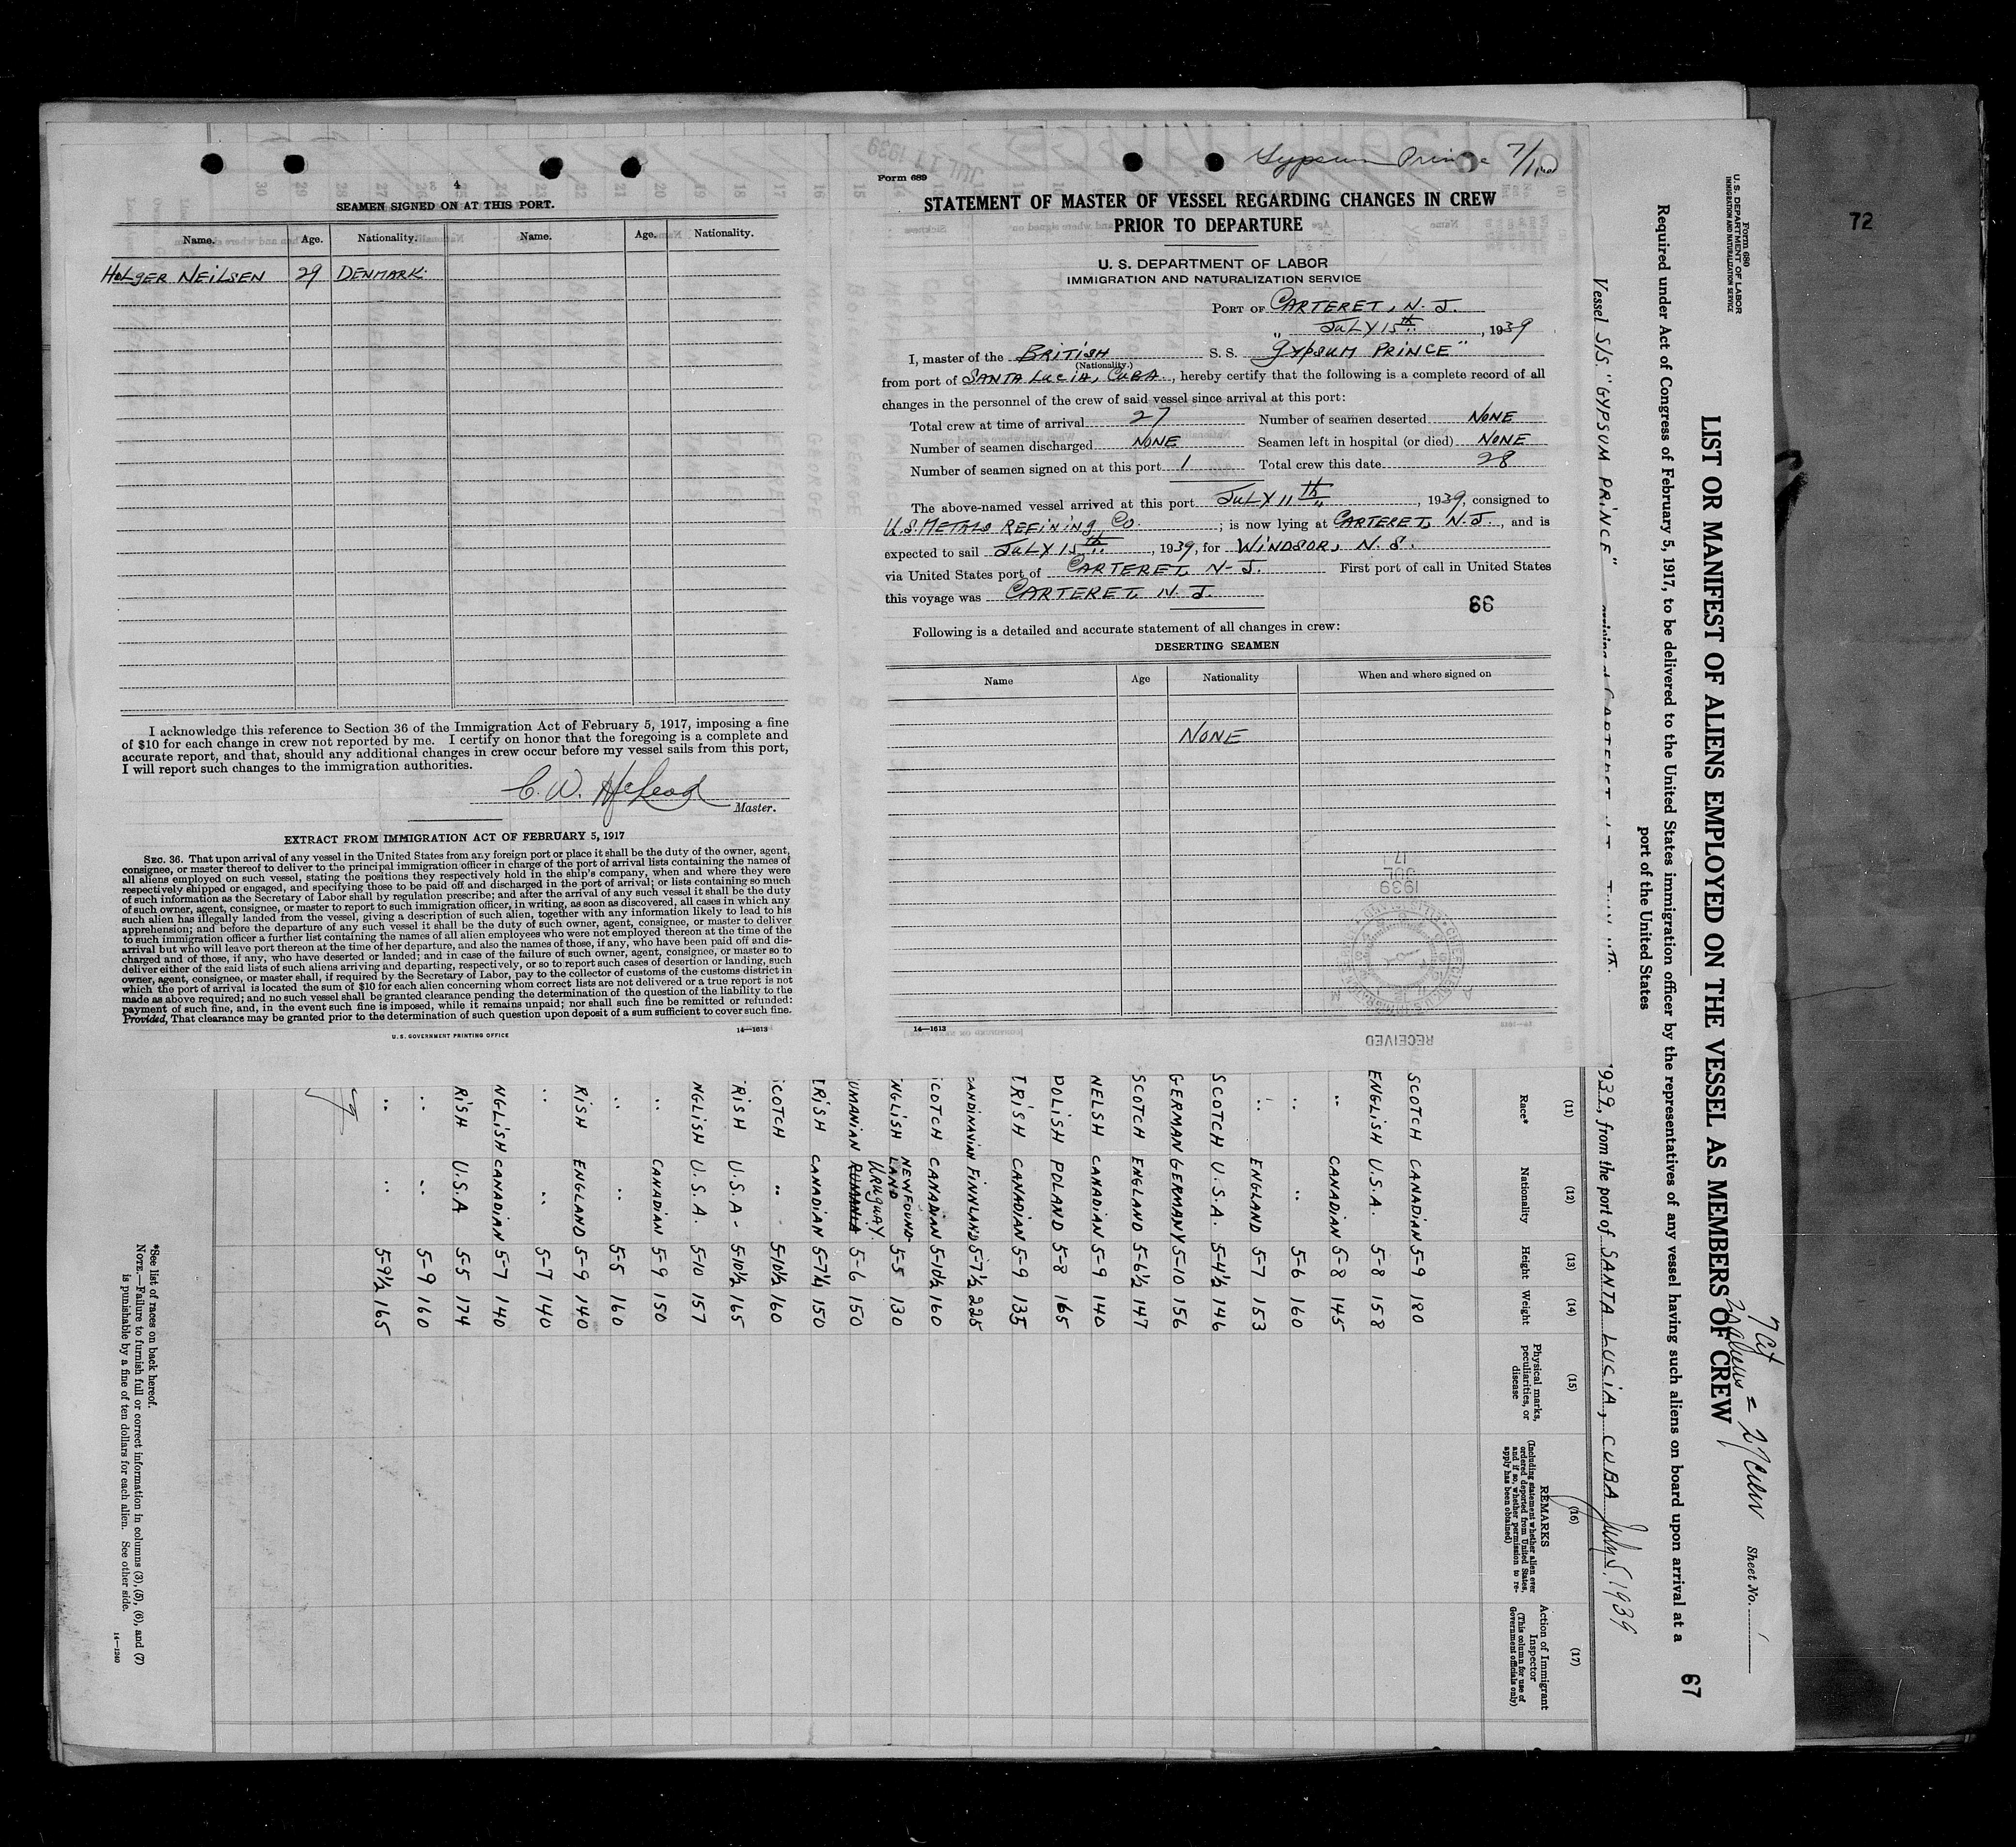 4
SEAMEN SIGNED ON AT THIS PORT.
Name. Age. Nationality. Name. Age. Nationality.
HOLGER NEILSEN 29 DENMARK.
I acknowledge this reference to Section 36 of the Immigration Act of February 5, 1917, imposing a fine
of $10 for each change in crew not reported by me. I certify on honor that the foregoing is a complete and
accurate report, and that, should any additional changes in crew occur before my vessel sails from this port,
I will report such changes to the immigration authorities.
C. W. McLeod
Master.
EXTRACT FROM IMMIGRATION ACT OF FEBRUARY 5, 1917
SEC. 36. That upon arrival of any vessel in the United States from any foreign port or place it shall be the duty of the owner, agent,
consignee, or master thereof to deliver to the principal immigration officer in charge of the port of arrival lists containing the names of
all aliens employed on such vessel, stating the positions they respectively hold in the ship's company, when and where they were
respectively shipped or engaged, and specifying those to be paid off and discharged in the port of arrival; or lists containing so much
of such information as the Secretary of Labor shall by regulation prescribe; and after the arrival of any such vessel it shall be the duty
of such owner, agent, consignee, or master to report to such immigration officer, in writing, as soon as discovered, all cases in which any
such alien has illegally landed from the vessel, giving a description of such alien, together with any information likely to lead to his
apprehension; and before the departure of any such vessel it shall be the duty of such owner, agent, consignee, or master to deliver
to such immigration officer a further list containing the names of all alien employees who were not employed thereon at the time of the
arrival but who will leave port thereon at the time of her departure, and also the names of those, if any, who have been paid off and dis-
charged and of those, if any, who have deserted or landed; and in case of the failure of such owner, agent, consignee, or master so to
deliver either of the said lists of such aliens arriving and departing, respectively, or so to report such cases of desertion or landing, such
owner, agent, consignee, or master shall, if required by the Secretary of Labor, pay to the collector of customs of the customs district in
which the port of arrival is located the sum of $10 for each alien concerning whom correct lists are not delivered or a true report is not
made as above required; and no such vessel shall be granted clearance pending the determination of the question of the liability to the
payment of such fine, and, in the event such fine is imposed, while it remains unpaid; nor shall such fine be remitted or refunded:
Provided, That clearance may be granted prior to the determination of such question upon deposit of a sum sufficient to cover such fine.
U. S. GOVERNMENT PRINTING OFFICE 14—1613
Gypsum Prince 7/1
Form 689
STATEMENT OF MASTER OF VESSEL REGARDING CHANGES IN CREW
PRIOR TO DEPARTURE
U. S. DEPARTMENT OF LABOR
IMMIGRATION AND NATURALIZATION SERVICE
PORT OF CARTERET, N. J.
" JULY 15th, 1939
I, master of the BRITISH S. S. GYPSUM PRINCE"
(Nationality.)
from port of SANTA LUCIA, CUBA, hereby certify that the following is a complete record of all
changes in the personnel of the crew of said vessel since arrival at this port:
Total crew at time of arrival 27 Number of seamen deserted NONE
Number of seamen discharged NONE Seamen left in hospital (or died) NONE
Number of seamen signed on at this port 1 Total crew this date 28
The above-named vessel arrived at this port JULY 11th, 1939, consigned to
U.S. METALS REFINING CO. ; is now lying at CARTERET, N. J., and is
expected to sail JULY 15th, 1939, for WINDSOR, N. S.
via United States port of CARTERET, N. J. First port of call in United States
this voyage was CARTERET, N. J.
66
Following is a detailed and accurate statement of all changes in crew:
DESERTING SEAMEN
Name Age Nationality When and where signed on
NONE
1939
JUL
17
RECEIVED
14—1613
72
Form 680
U. S. DEPARTMENT OF LABOR
IMMIGRATION AND NATURALIZATION SERVICE
7 Cit
= 27 Crew
Sheet No. 1
LIST OR MANIFEST OF ALIENS EMPLOYED ON THE VESSEL AS MEMBERS OF CREW
67
Required under Act of Congress of February 5, 1917, to be delivered to the United States immigration officer by the representatives of any vessel having such aliens on board upon arrival at a
port of the United States
Vessel S/S. "GYPSUM PRINCE" arriving at CARTERET 1939, from the port of SANTA LUCIA, CUBA July 5, 1939
(11) (12) (13) (14) (15) (16) (17)
Race* Nationality Height Weight Physical marks, peculiarities, or disease REMARKS (Including statement whether alien ever ordered deported from United States, and if so, whether permission to re-apply has been obtained) Action of Immigrant Inspector (This column for use of Government officials only)
SCOTCH CANADIAN 5-9 180
ENGLISH U.S.A. 5-8 158
" CANADIAN 5-8 145
" " 5-6 160
" ENGLAND 5-7 153
SCOTCH U.S.A. 5-4½ 146
GERMAN GERMANY 5-10 156
SCOTCH ENGLAND 5-6½ 147
WELSH CANADIAN 5-9 140
POLISH POLAND 5-8 165
IRISH CANADIAN 5-9 135
CANDINAVIAN FINNLAND 5-7½ 225
COTCH CANADIAN 5-10½ 160
NGLISH NEWFOUND-LAND 5-5 130
UMANIAN RUMANIA URUGUAY. 5-6 150
IRISH CANADIAN 5-7¼ 150
COTCH " 5-10½ 160
RISH U.S.A. 5-10½ 165
NGLISH U.S.A. 5-10 157
" CANADIAN 5-9 150
" " 5-5 160
RISH ENGLAND 5-9 140
" " 5-7 140
NGLISH CANADIAN 5-7 140
RISH U.S.A 5-5 174
" " 5-9 160
" " 5-9½ 165
*See list of races on back hereof.
NOTE.—Failure to furnish full or correct information in columns (3), (5), (6), and (7)
is punishable by a fine of ten dollars for each alien. See other side.
14—1240